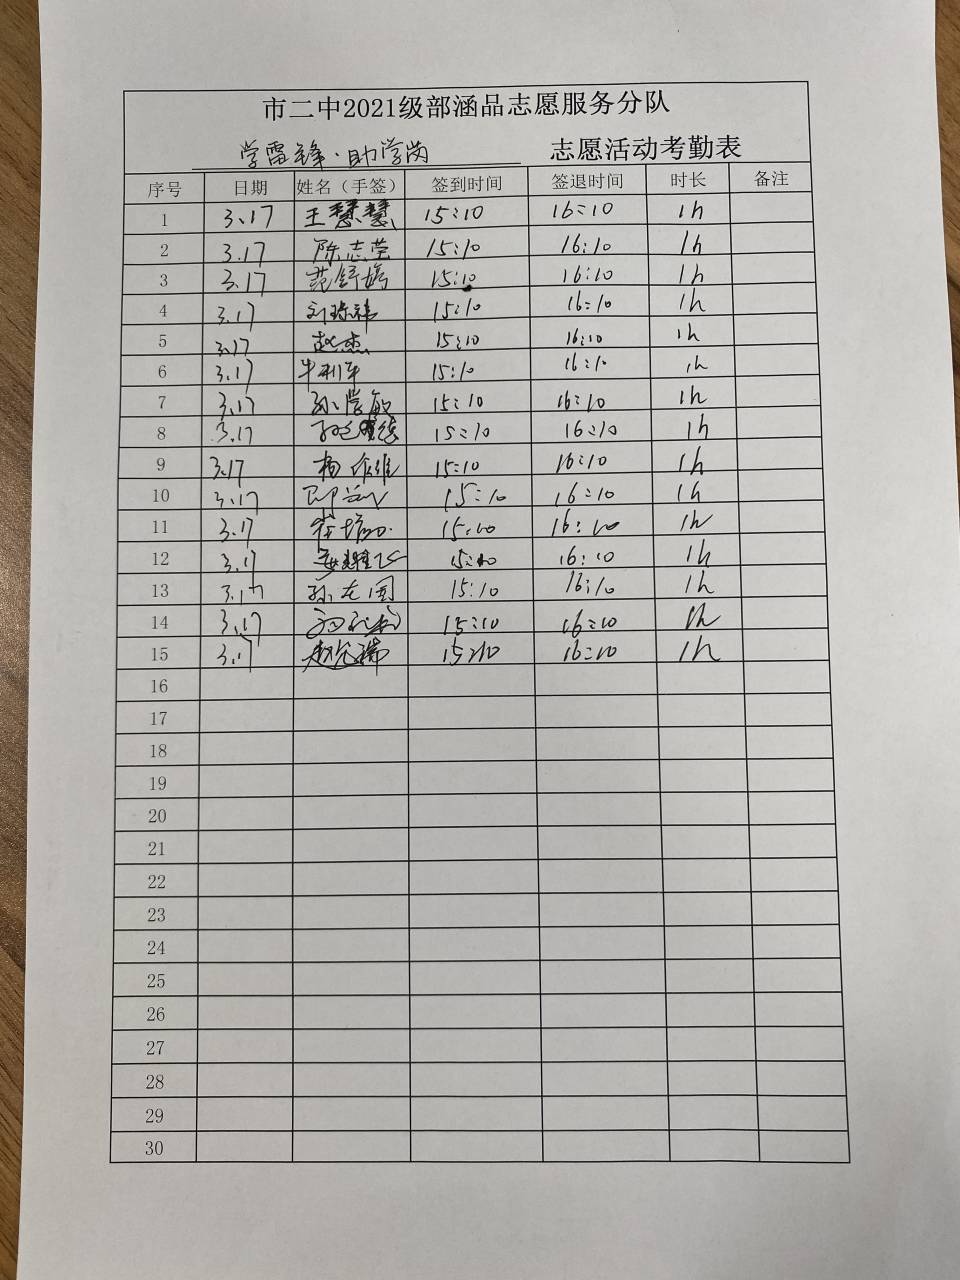 市二中2021级部涵品志愿服务分队
学雷锋·助学岗 志愿活动考勤表
序号 日期 姓名（手签） 签到时间 签退时间 时长 备注
1 3.17 王慧慧 15:10 16:10 1h
2 3.17 陈志莹 15:10 16:10 1h
3 3.17 范舒婷 15:10 16:10 1h
4 3.17 15:10 16:10 1h
5 3.17 赵杰 15:10 16:10 1h
6 3.17 牛利军 15:10 16:10 1h
7 3.17 孙学敏 15:10 16:10 1h
8 3.17 15:10 16:10 1h
9 3.17 杨维维 15:10 16:10 1h
10 3.17 15:10 16:10 1h
11 3.17 15:10 16:10 1h
12 3.17 15:10 16:10 1h
13 3.17 孙友国 15:10 16:10 1h
14 3.17 15:10 16:10 1h
15 3.17 15:10 16:10 1h
16
17
18
19
20
21
22
23
24
25
26
27
28
29
30